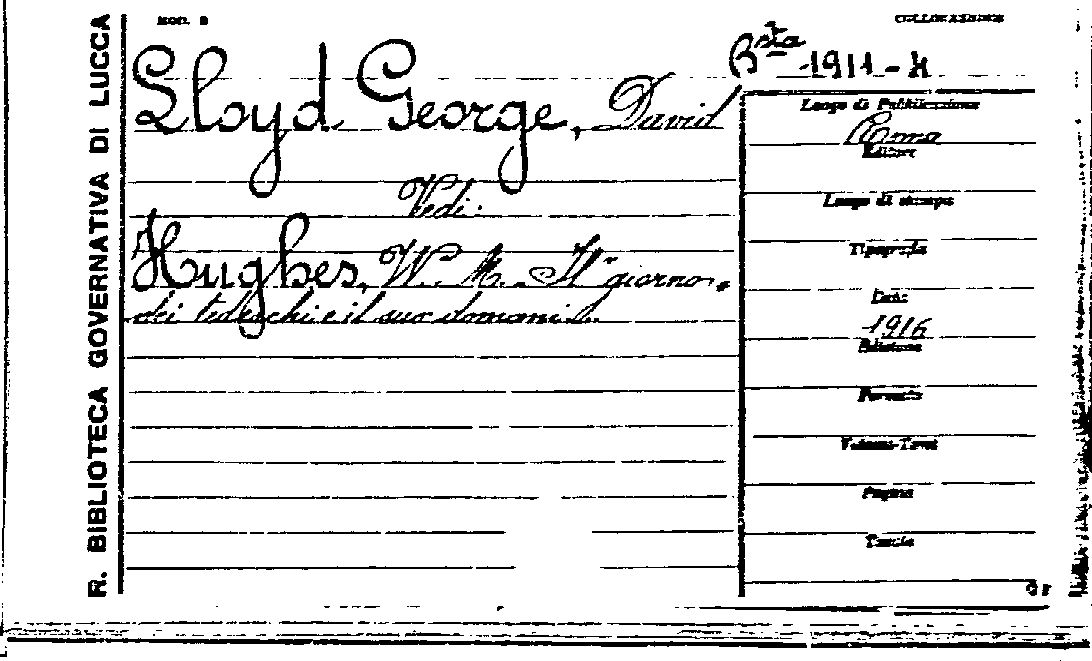 R. BIBLIOTECA GOVERNATIVA DI LUCCA
MOD. B
COLLOCAZIONE
Bsta 1911-
Lloyd George, David
Vedi:
Hughes, W. M. Il giorno
dei tedeschi e il suo domani.
Luogo di Pubblicazione
Roma
Editore
Luogo di stampa
Tipografia
Data
1916
Edizione
Formato
Volumi-Tomi
Pagine
Tavole